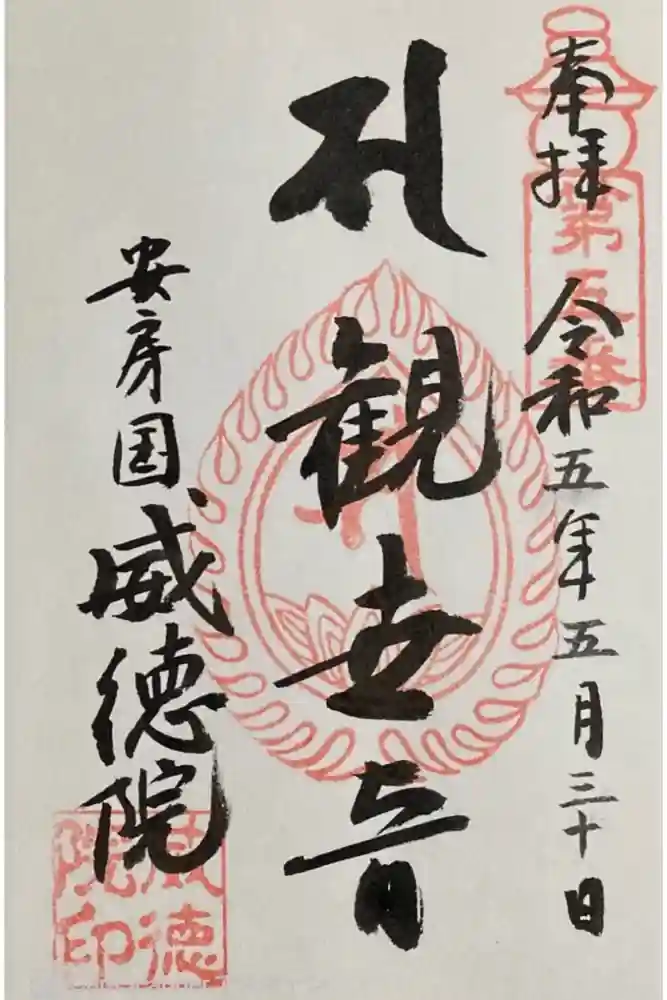 奉拝
令和五年五月三十日
観世音
安房国威徳院
威徳
院印